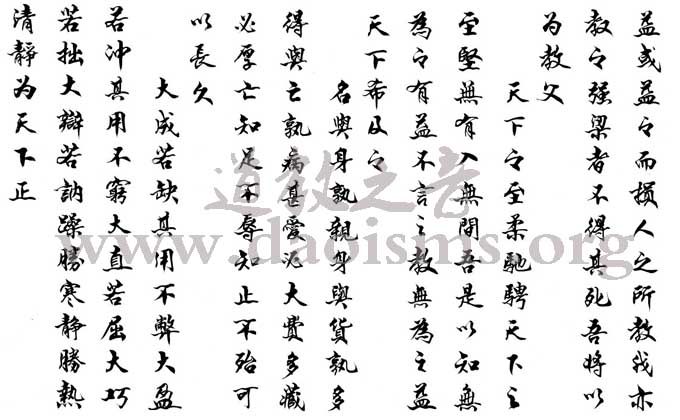 益或益之而损人之所教我亦
教之强梁者不得其死吾将以
为教父
天下之至柔馳騁天下之
至堅無有入無間吾是以知無
為之有益不言之教無為之益
天下希及之
名與身孰親身與貨孰多
得與亡孰病甚愛必大費多藏
必厚亡知足不辱知止不殆可
以長久
大成若缺其用不弊大盈
若冲其用不窮大直若屈大巧
若拙大辯若訥躁勝寒静勝熱
清靜为天下正
道教之音
www.daoisms.org